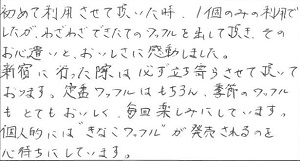 初めて利用させて頂いた時、1個のみの利用で
したが、わざわざできたてのワッフルを出して頂き、その
お心遣いと、おいしさに感動しました。
新宿に行った際は必ず立ち寄らせて頂いて
おります。定番ワッフルはもちろん、季節のワッフル
もとてもおいしく、毎回楽しみにしています。
個人的には"きなこワッフル"が発売されるのを
心待ちにしています。